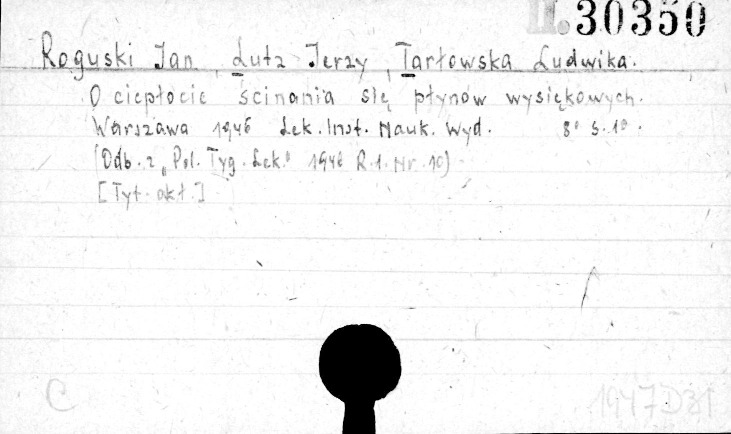 II.30350
Roguski Jan, Lutz Jerzy, Tarłowska Ludwika.
O ciepłocie ścinania się płynów wysiękowych.
Warszawa 1946 Lek. Inst. Nauk. Wyd. 8° s. 10.
(Odb. z „Pol. Tyg. Lek." 1946 R. 1. Nr. 10)
[Tyt. okł.]
C 1947D31